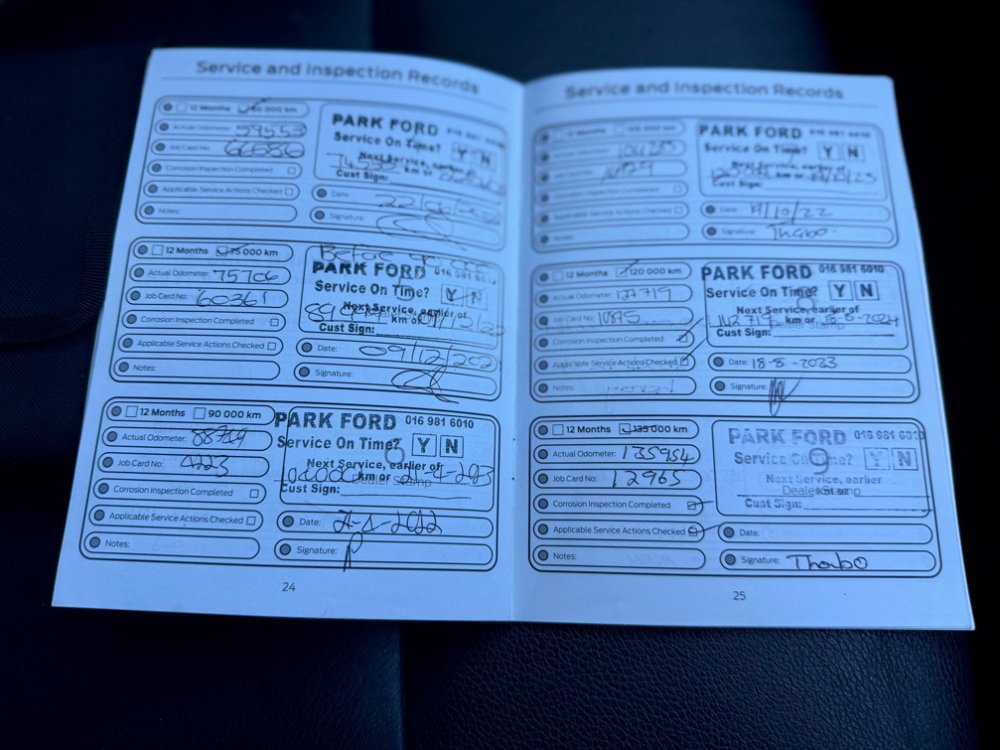 Service and Inspection Records
12 Months 60 000 km
Actual Odometer: 59553
Job Card No: 66686
Corrosion Inspection Completed
Applicable Service Actions Checked
Notes:
PARK FORD 016 981 6010
Service On Time? Y N
Next Service, earlier of
km or
Cust Sign:
Date:
Signature:
12 Months 75 000 km
Actual Odometer: 75706
Job Card No: 60361
Corrosion Inspection Completed
Applicable Service Actions Checked
Notes:
Before
PARK FORD 016 981 6010
Service On Time? Y N
Next Service, earlier of
km or
Cust Sign:
Date: 09/12/202
Signature:
12 Months 90 000 km
Actual Odometer: 88759
Job Card No: 4123
Corrosion Inspection Completed
Applicable Service Actions Checked
Notes:
PARK FORD 016 981 6010
Service On Time? Y N
Next Service, earlier of
km or
Dealer Stamp
Cust Sign:
Date:
Signature:
24
Service and Inspection Records
12 Months 105 000 km
Completed
Applicable Service Actions Checked
Notes:
PARK FORD 016 981 6010
Service On Time? Y N
Next Service, earlier of
km or
Cust Sign:
Date: 19/10/22
Signature: Thabo
12 Months 120 000 km
Actual Odometer: 127719
Job Card No: 10875
Corrosion Inspection Completed
Applicable Service Actions Checked
Notes:
PARK FORD 016 981 6010
Service On Time? Y N
Next Service, earlier of
142 719 km or 18-8-2024
Cust Sign:
Date: 18-8-2033
Signature:
12 Months 135 000 km
Actual Odometer: 135954
Job Card No: 12965
Corrosion Inspection Completed
Applicable Service Actions Checked
Notes:
PARK FORD 016 981 6010
Service On Time? Y N
9
Next Service, earlier
km or
Dealer Stamp
Cust Sign:
Date:
Signature: Thabo
25